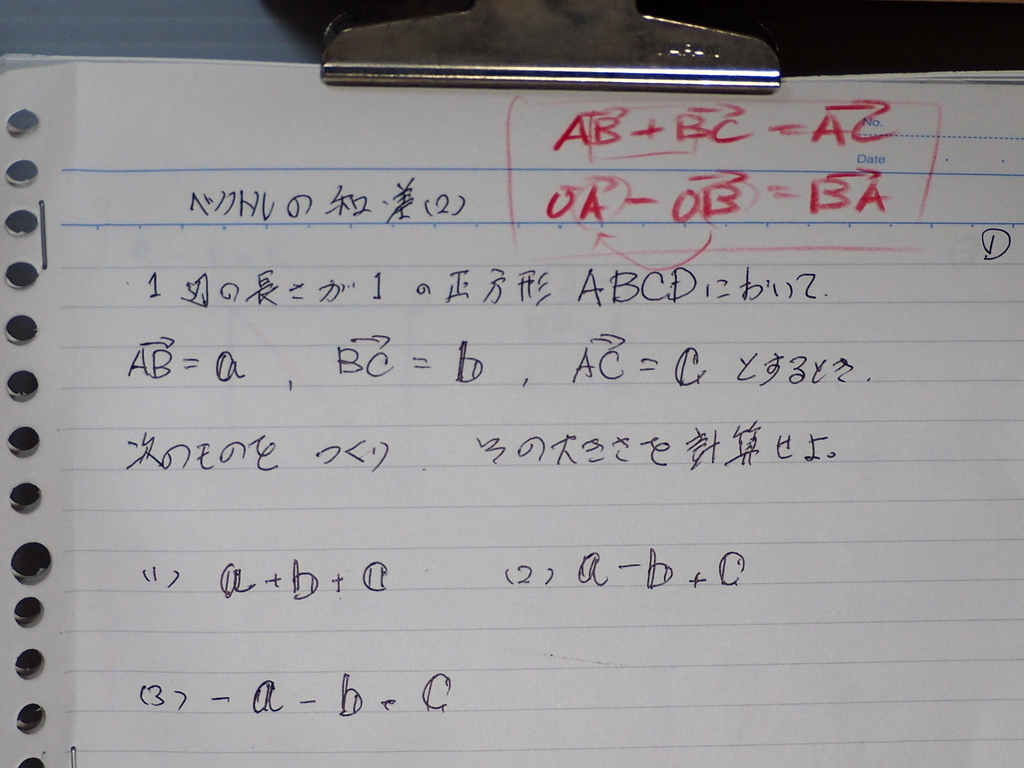 AB + BC = AC
No.
Date
OA - OB = BA
ベクトルの和・差(2)
①
1辺の長さが1の正方形 ABCDにおいて.
AB = a , BC = b , AC = c とするとき.
次のものを つくり . その大きさを計算せよ。
(1) a + b + c (2) a - b + c
(3) - a - b + c